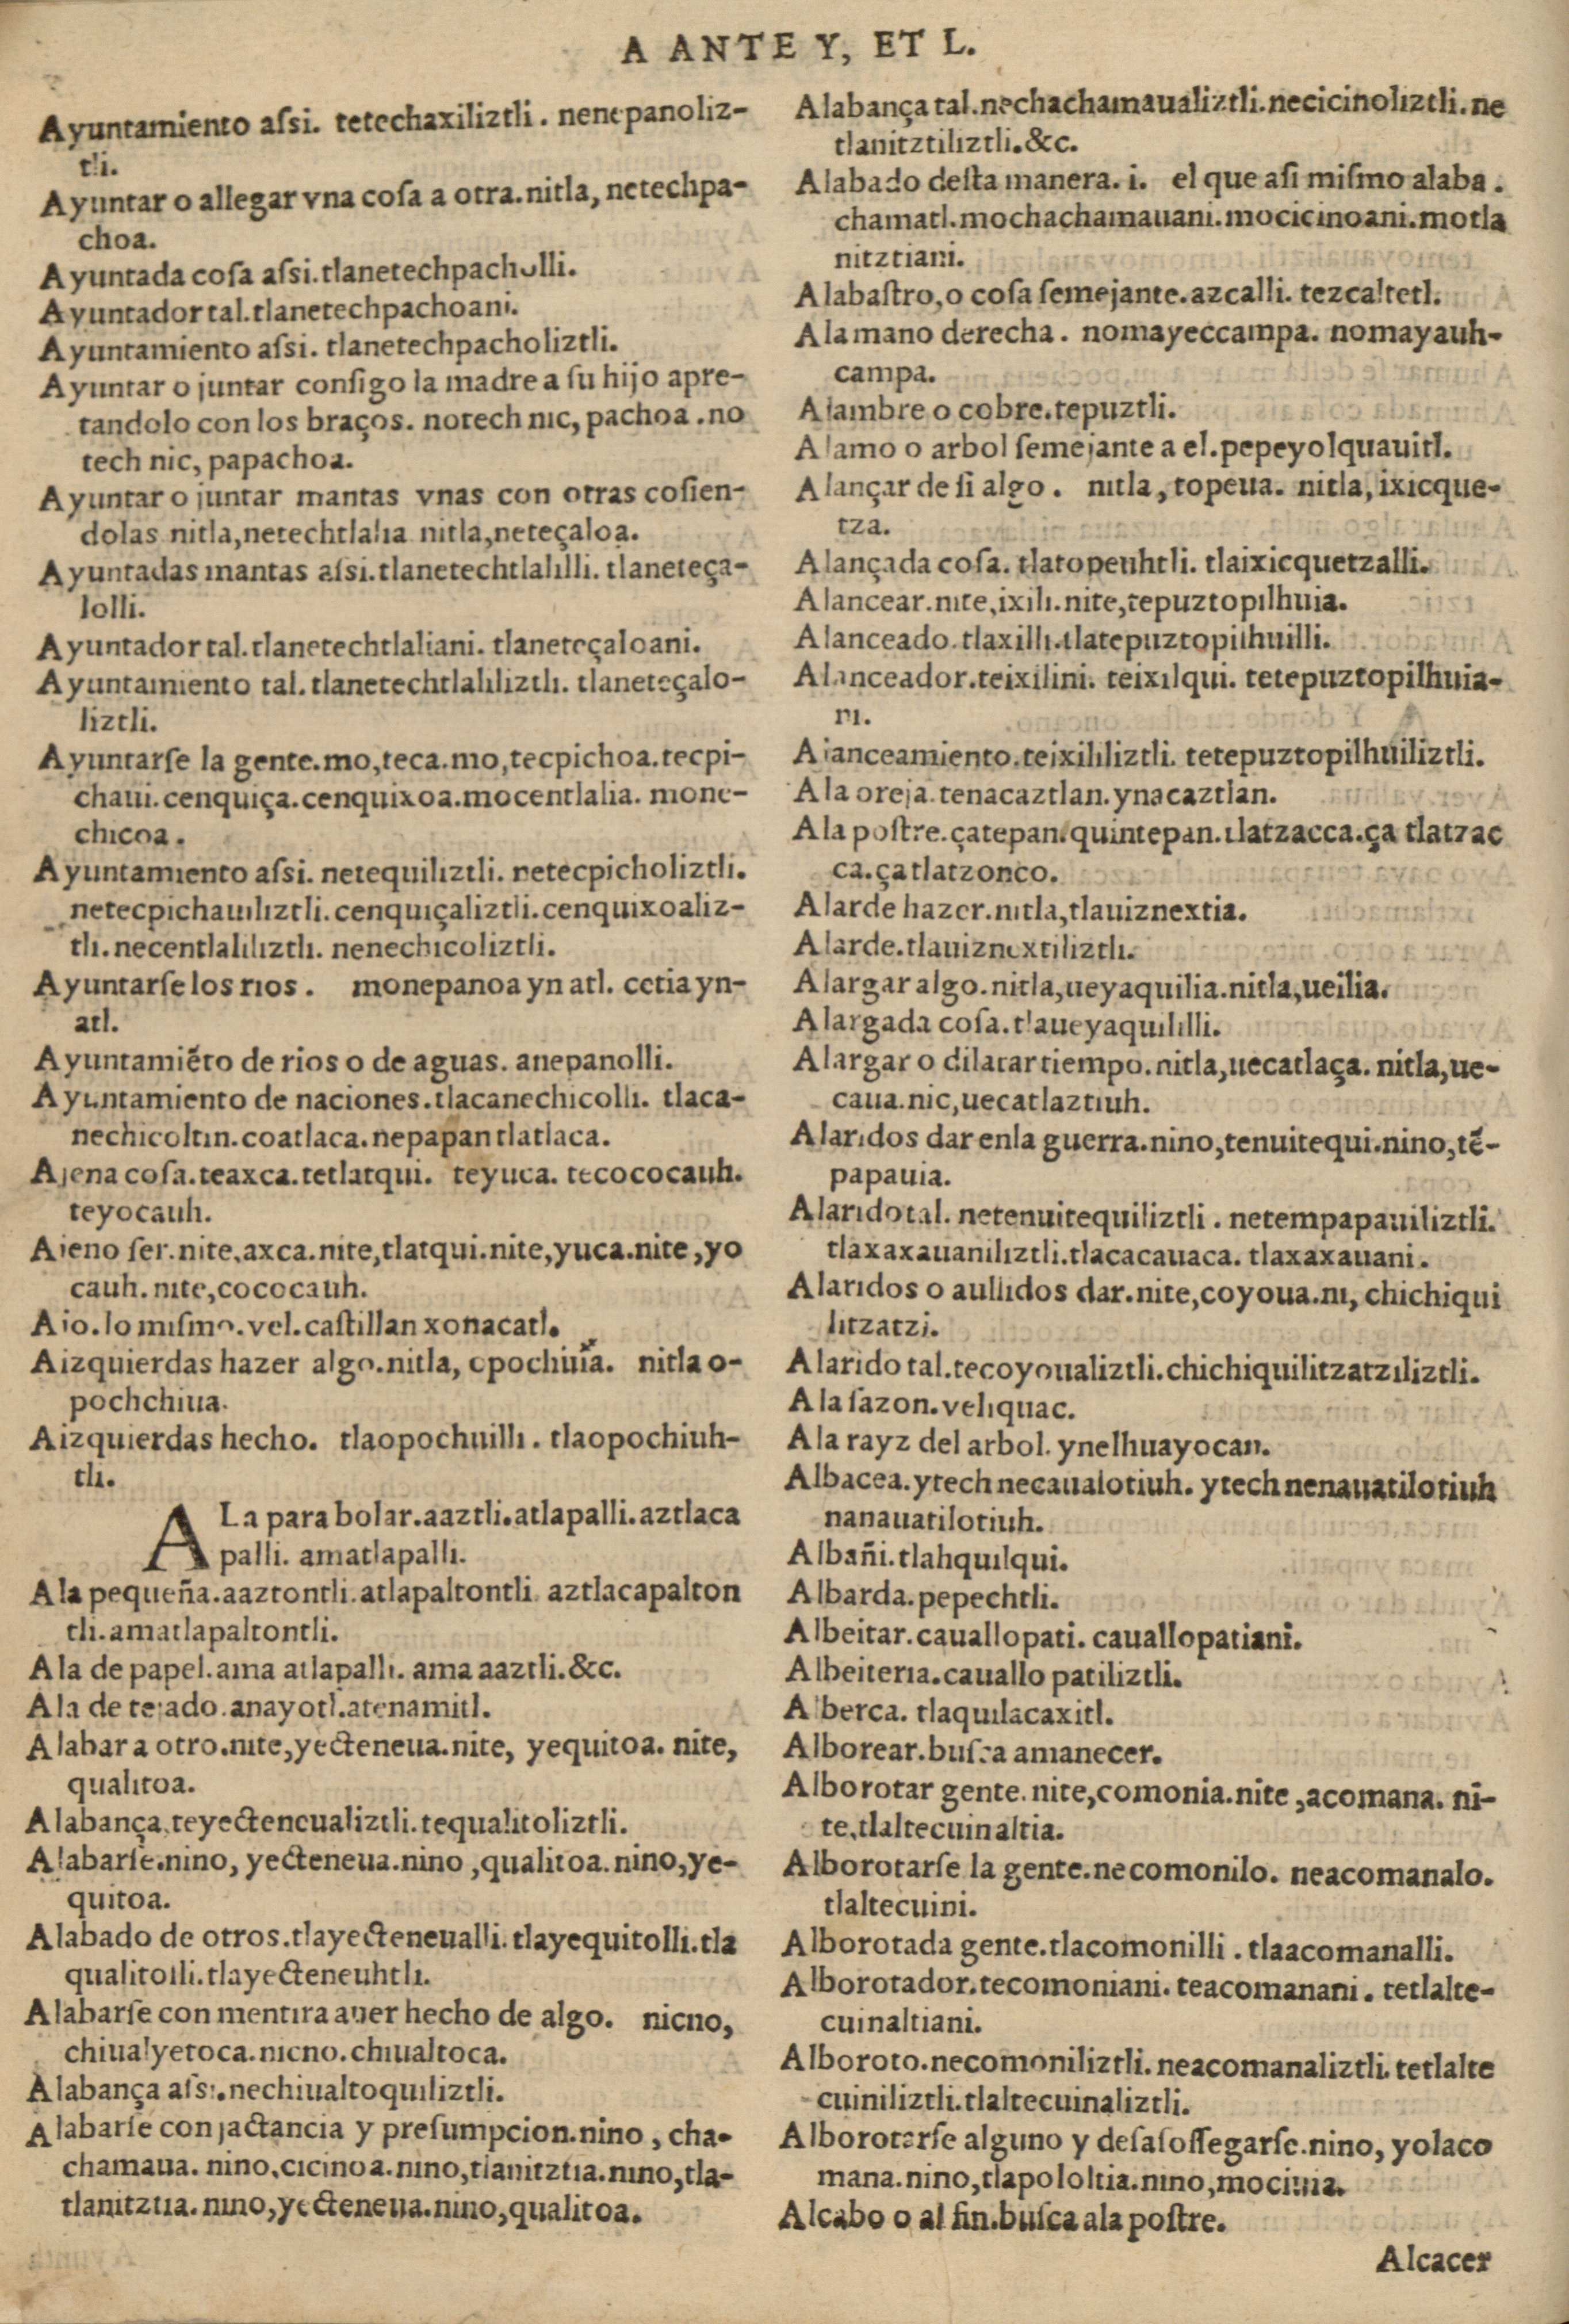 A ANTE Y, ET L.
Ayuntamiento aſsi. tetechaxiliztli. nenepanoliz-
tli.
Ayuntar o allegar vna coſa a otra. nitla, netechpa-
choa.
Ayuntada coſa aſsi. tlanetechpacholli.
Ayuntador tal. tlanetechpachoani.
Ayuntamiento aſsi. tlanetechpacholiztli.
Ayuntar o juntar conſigo la madre a ſu hijo apre-
tandolo con los braços. notech nic, pachoa. no
tech nic, papachoa.
Ayuntar o juntar mantas vnas con otras coſien-
dolas nitla, netechtlalia nitla, neteçaloa.
Ayuntadas mantas aſsi. tlanetechtlalilli. tlaneteça-
lolli.
Ayuntador tal. tlanetechtlaliani. tlaneteçaloani.
Ayuntamiento tal. tlanetechtlaliliztli. tlaneteçalo-
liztli.
Ayuntarſe la gente. mo, teca. mo, tecpichoa. tecpi-
chaui. cenquiça. cenquixoa. mocentlalia. mone-
chicoa.
Ayuntamiento aſsi. netequiliztli. netecpicholiztli.
netecpichauiliztli. cenquiçaliztli. cenquixoaliz-
tli. necentlaliliztli. nenechicoliztli.
Ayuntarſe los rios. monepanoa yn atl. cetia yn-
atl.
Ayuntamiẽto de rios o de aguas. anepanolli.
Ayuntamiento de naciones. tlacanechicolli. tlaca-
nechicoltin. coatlaca. nepapan tlatlaca.
Ajena coſa. teaxca. tetlatqui. teyuca. tecococauh.
teyocauh.
Ajeno ſer. nite, axca. nite, tlatqui. nite, yuca. nite, yo
cauh. nite, cococauh.
Ajo. lo miſmo. vel. caſtillan xonacatl.
Aizquierdas hazer algo. nitla, opochiuia. nitla o-
pochchiua.
Aizquierdas hecho. tlaopochuilli. tlaopochiuh-
tli.
ALa para bolar. aaztli. atlapalli. aztlaca
palli. amatlapalli.
Ala pequeña. aaztontli. atlapaltontli. aztlacapalton
tli. amatlapaltontli.
Ala de papel. ama atlapalli. ama aaztli. &c.
Ala de tejado. anayotl. atenamitl.
Alabar a otro. nite, yecteneua. nite, yequitoa. nite,
qualitoa.
Alabança. teyecteneualiztli. tequalitoliztli.
Alabarſe. nino, yecteneua. nino, qualitoa. nino, ye-
quitoa.
Alabado de otros. tlayecteneualli. tlayequitolli. tla
qualitolli. tlayecteneuhtli.
Alabarſe con mentira auer hecho de algo. nicno,
chiualyetoca. nicno. chiualtoca.
Alabança aſsi. nechiualtoquiliztli.
Alabarſe con jactancia y preſumpcion. nino, cha-
chamaua. nino, cicinoa. nino, tlanitztia. nino, tla-
tlanitztia. nino, yecteneua. nino, qualitoa.
Alabança tal. nechachamaualiztli. necicinoliztli. ne
tlanitztiliztli. &c.
Alabado deſta manera. i. el que aſi miſmo alaba.
chamatl. mochachamauani. mocicinoani. motla
nitztiani.
Alabaſtro, o coſa ſemejante. azcalli. tezcaltetl.
Ala mano derecha. nomayeccampa. nomayauh-
campa.
Alambre o cobre. tepuztli.
Alamo o arbol ſemejante a el. pepeyolquauitl.
Alançar de ſi algo. nitla, topeua. nitla, ixicque-
tza.
Alançada coſa. tlatopeuhtli. tlaixicquetzalli.
Alancear. nite, ixili. nite, tepuztopilhuia.
Alanceado. tlaxilli. tlatepuztopilhuilli.
Alanceador. teixilini. teixilqui. tetepuztopilhuia-
ni.
Alanceamiento. teixililiztli. tetepuztopilhuiliztli.
Ala oreja. tenacaztlan. ynacaztlan.
Ala poſtre. çatepan. quintepan. tlatzacca. ça tlatzac
ca. ça tlatzonco.
Alarde hazer. nitla, tlauiznextia.
Alarde. tlauiznextiliztli.
Alargar algo. nitla, ueyaquilia. nitla, ueilia.
Alargada coſa. tlaueyaquililli.
Alargar o dilatar tiempo. nitla, uecatlaça. nitla, ue-
caua. nic, uecatlaztiuh.
Alaridos dar enla guerra. nino, tenuitequi. nino, tẽ-
papauia.
Alarido tal. netenuitequiliztli. netempapauiliztli.
tlaxaxauaniliztli. tlacacauaca. tlaxaxauani.
Alaridos o aullidos dar. nite, coyoua. ni, chichiqui
litzatzi.
Alarido tal. tecoyoualiztli. chichiquilitzatziliztli.
Ala ſazon. veliquac.
Ala rayz del arbol. ynelhuayocan.
Albacea. ytech necaualotiuh. ytech nenauatilotiuh
nanauatilotiuh.
Albañi. tlahquilqui.
Albarda. pepechtli.
Albeitar. cauallopati. cauallopatiani.
Albeiteria. cauallo patiliztli.
Alberca. tlaquilacaxitl.
Alborear. buſca amanecer.
Alborotar gente. nite, comonia. nite, acomana. ni-
te, tlaltecuinaltia.
Alborotarſe la gente. necomonilo. neacomanalo.
tlaltecuini.
Alborotada gente. tlacomonilli. tlaacomanalli.
Alborotador. tecomoniani. teacomanani. tetlalte-
cuinaltiani.
Alboroto. necomoniliztli. neacomanaliztli. tetlalte
cuiniliztli. tlaltecuinaliztli.
Alborotarſe alguno y deſaſoſſegarſe. nino, yolaco
mana. nino, tlapololtia. nino, mociuia.
Alcabo o al fin. buſca ala poſtre.
Alcacer